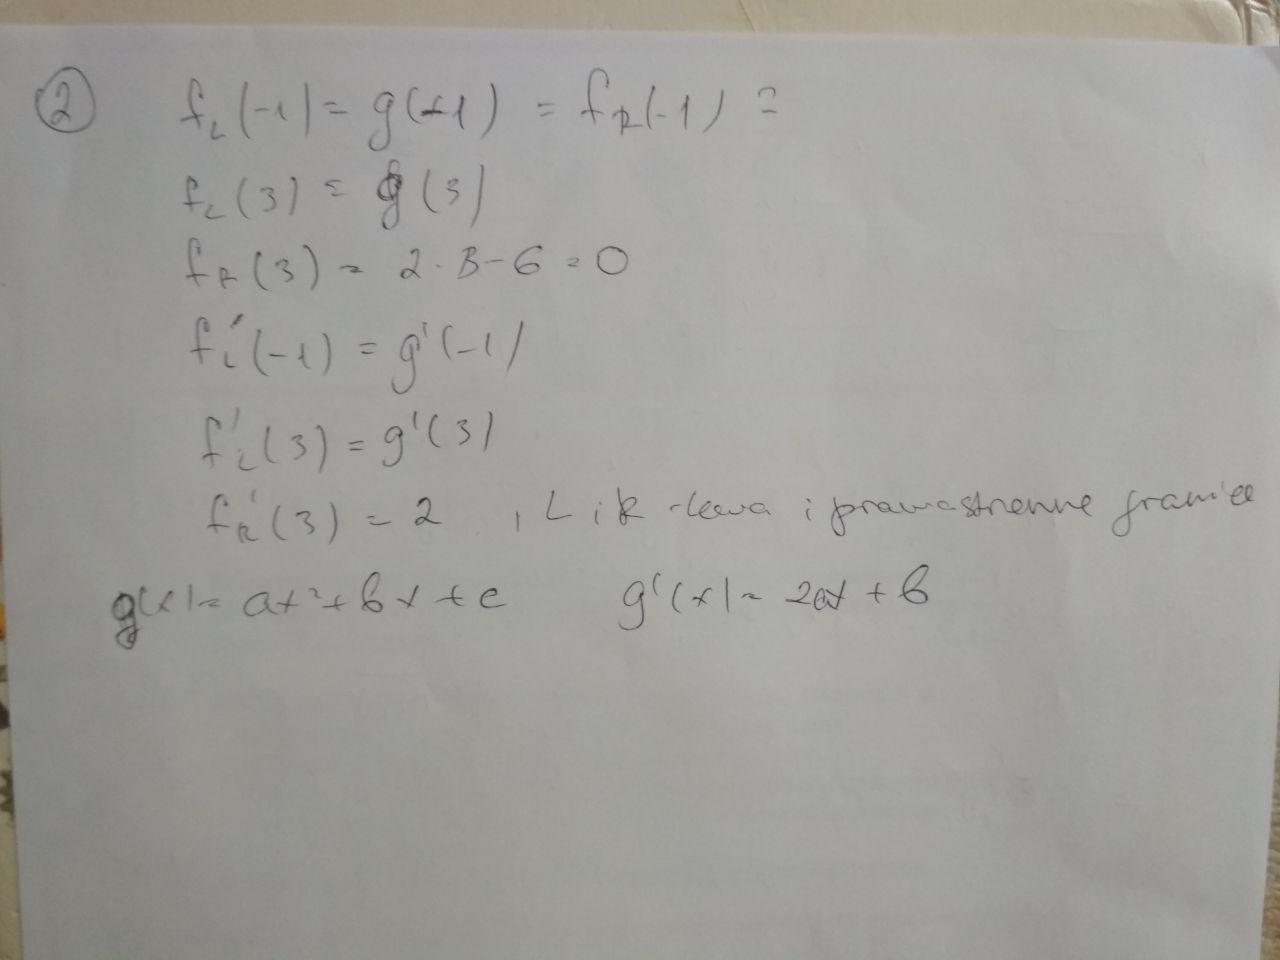 ② f_L(-1) = g(-1) = f_R(-1) =
f_L(3) = g(3)
f_R(3) = 2·3-6 = 0
f'_L(-1) = g'(-1)
f'_L(3) = g'(3)
f'_R(3) = 2 , L i R - lewa i prawastrenne granice
g(x) = ax²+bx+c g'(x) = 2ax+b